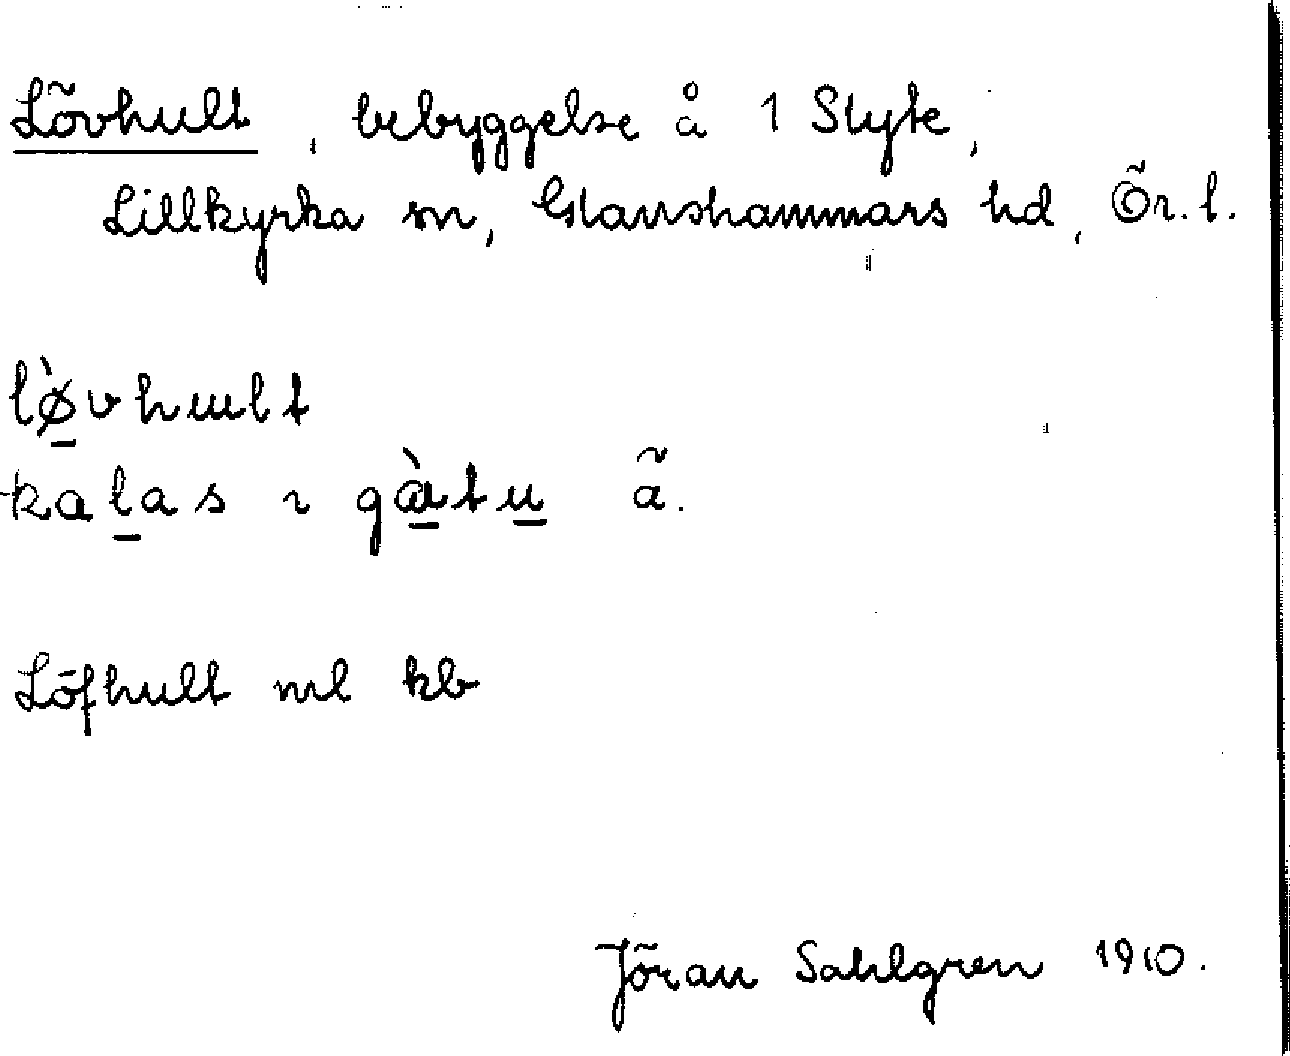 Lövhult, bebyggelse å 1 Slyte,
Lillkyrka sn, Glanshammars hd, Ör. l.
lø̀vhult
kalas ı gàtu ä.
Löfhult ml kb
Jöran Sahlgren 1910.